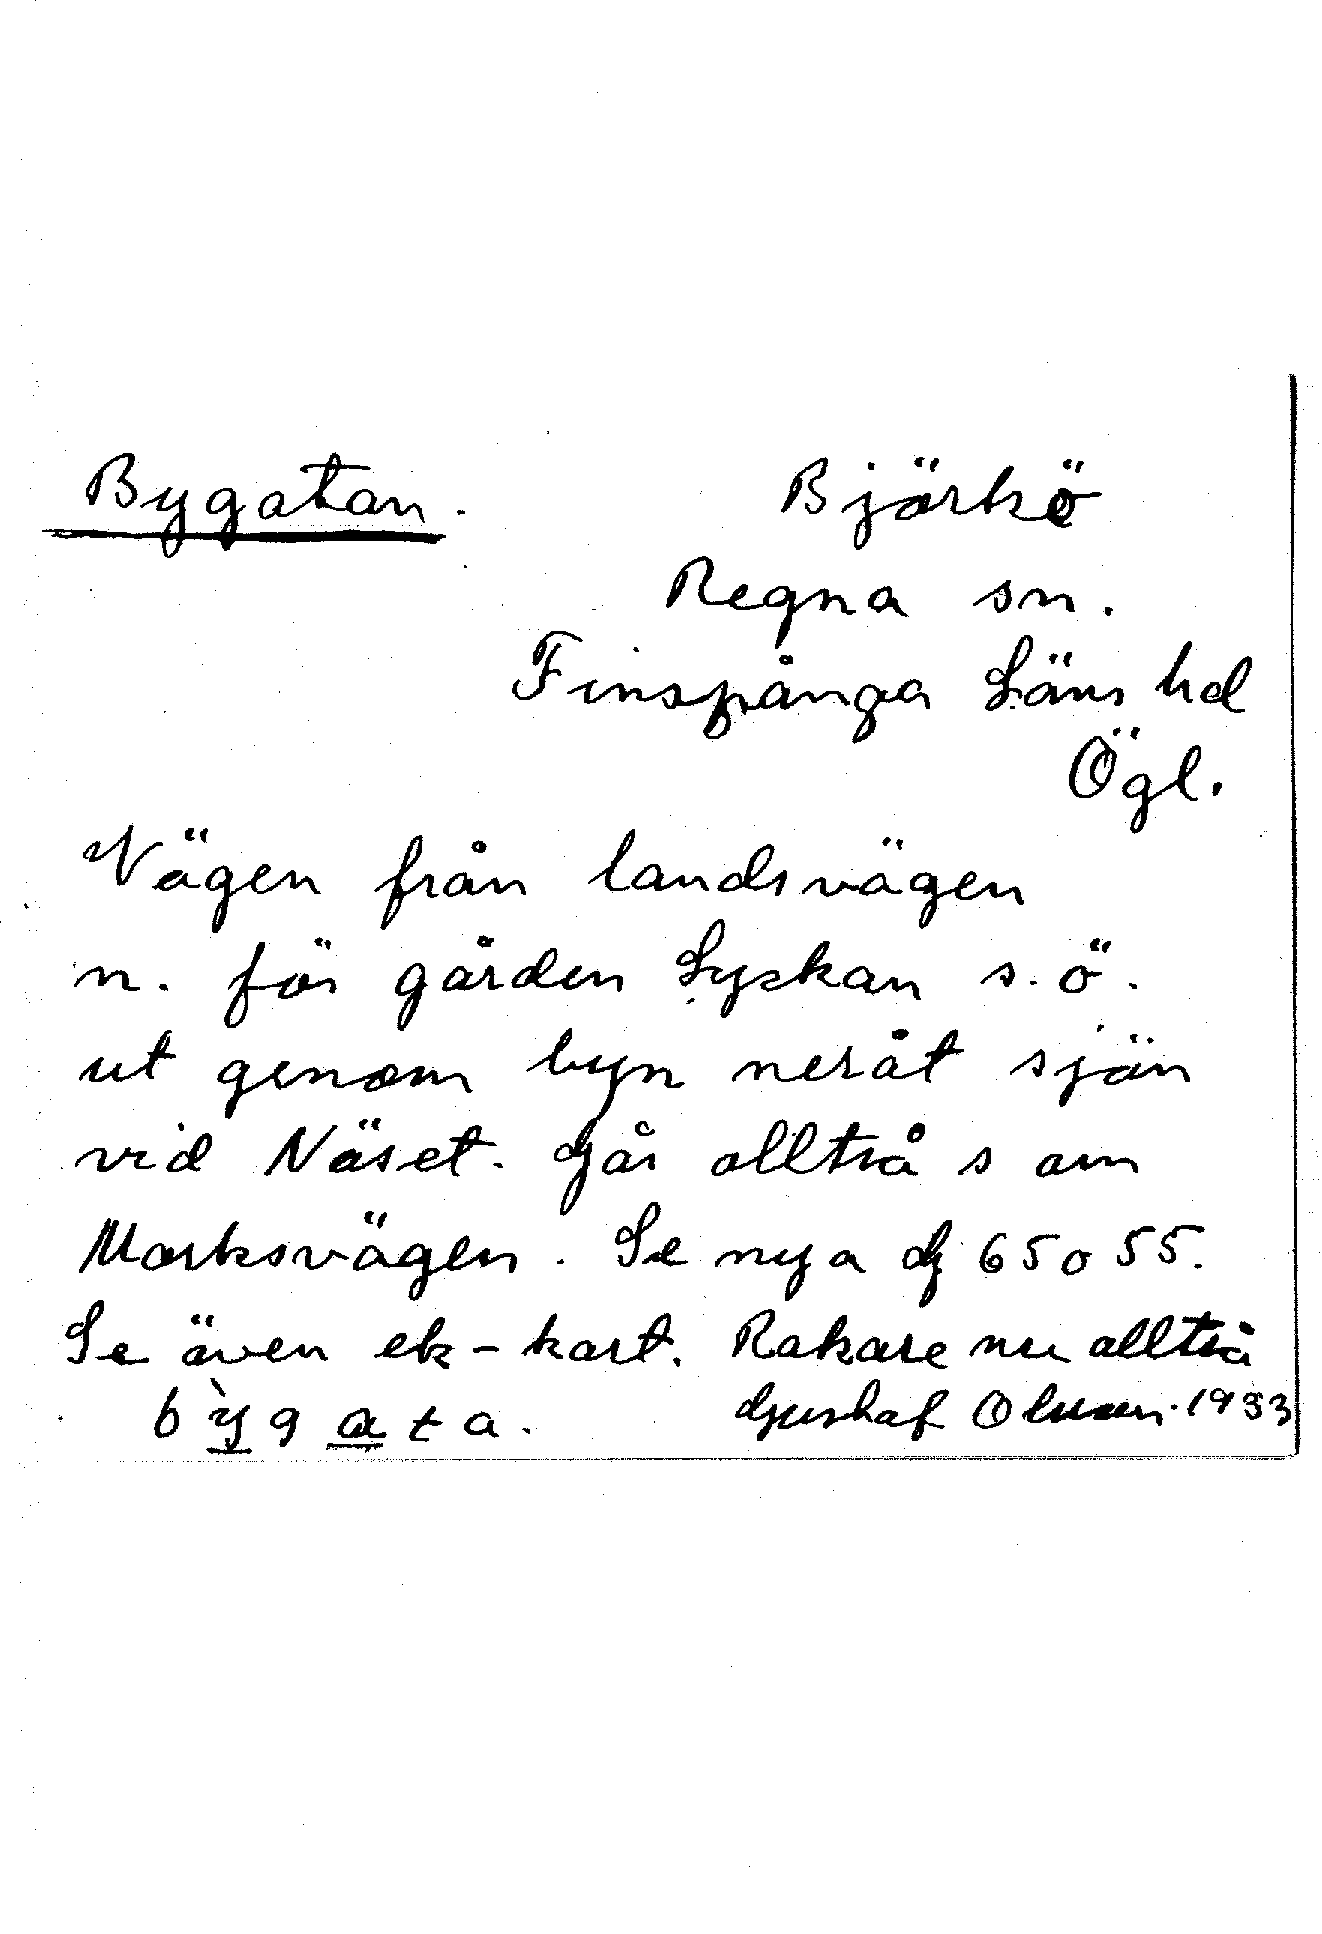 Bygatan. Björkö
Regna sn.
Finspånga Läns hd
Ögl.
Vägen från landsvägen
n. för gården Lyckan s.ö.
ut genom byn neråt sjön
vid Näset. Går alltså som
Marksvägen. Se nya 65 o 55.
Se även ek-kart. Rakare nu alltså
bỳgata. Gustaf Olsson. 1933